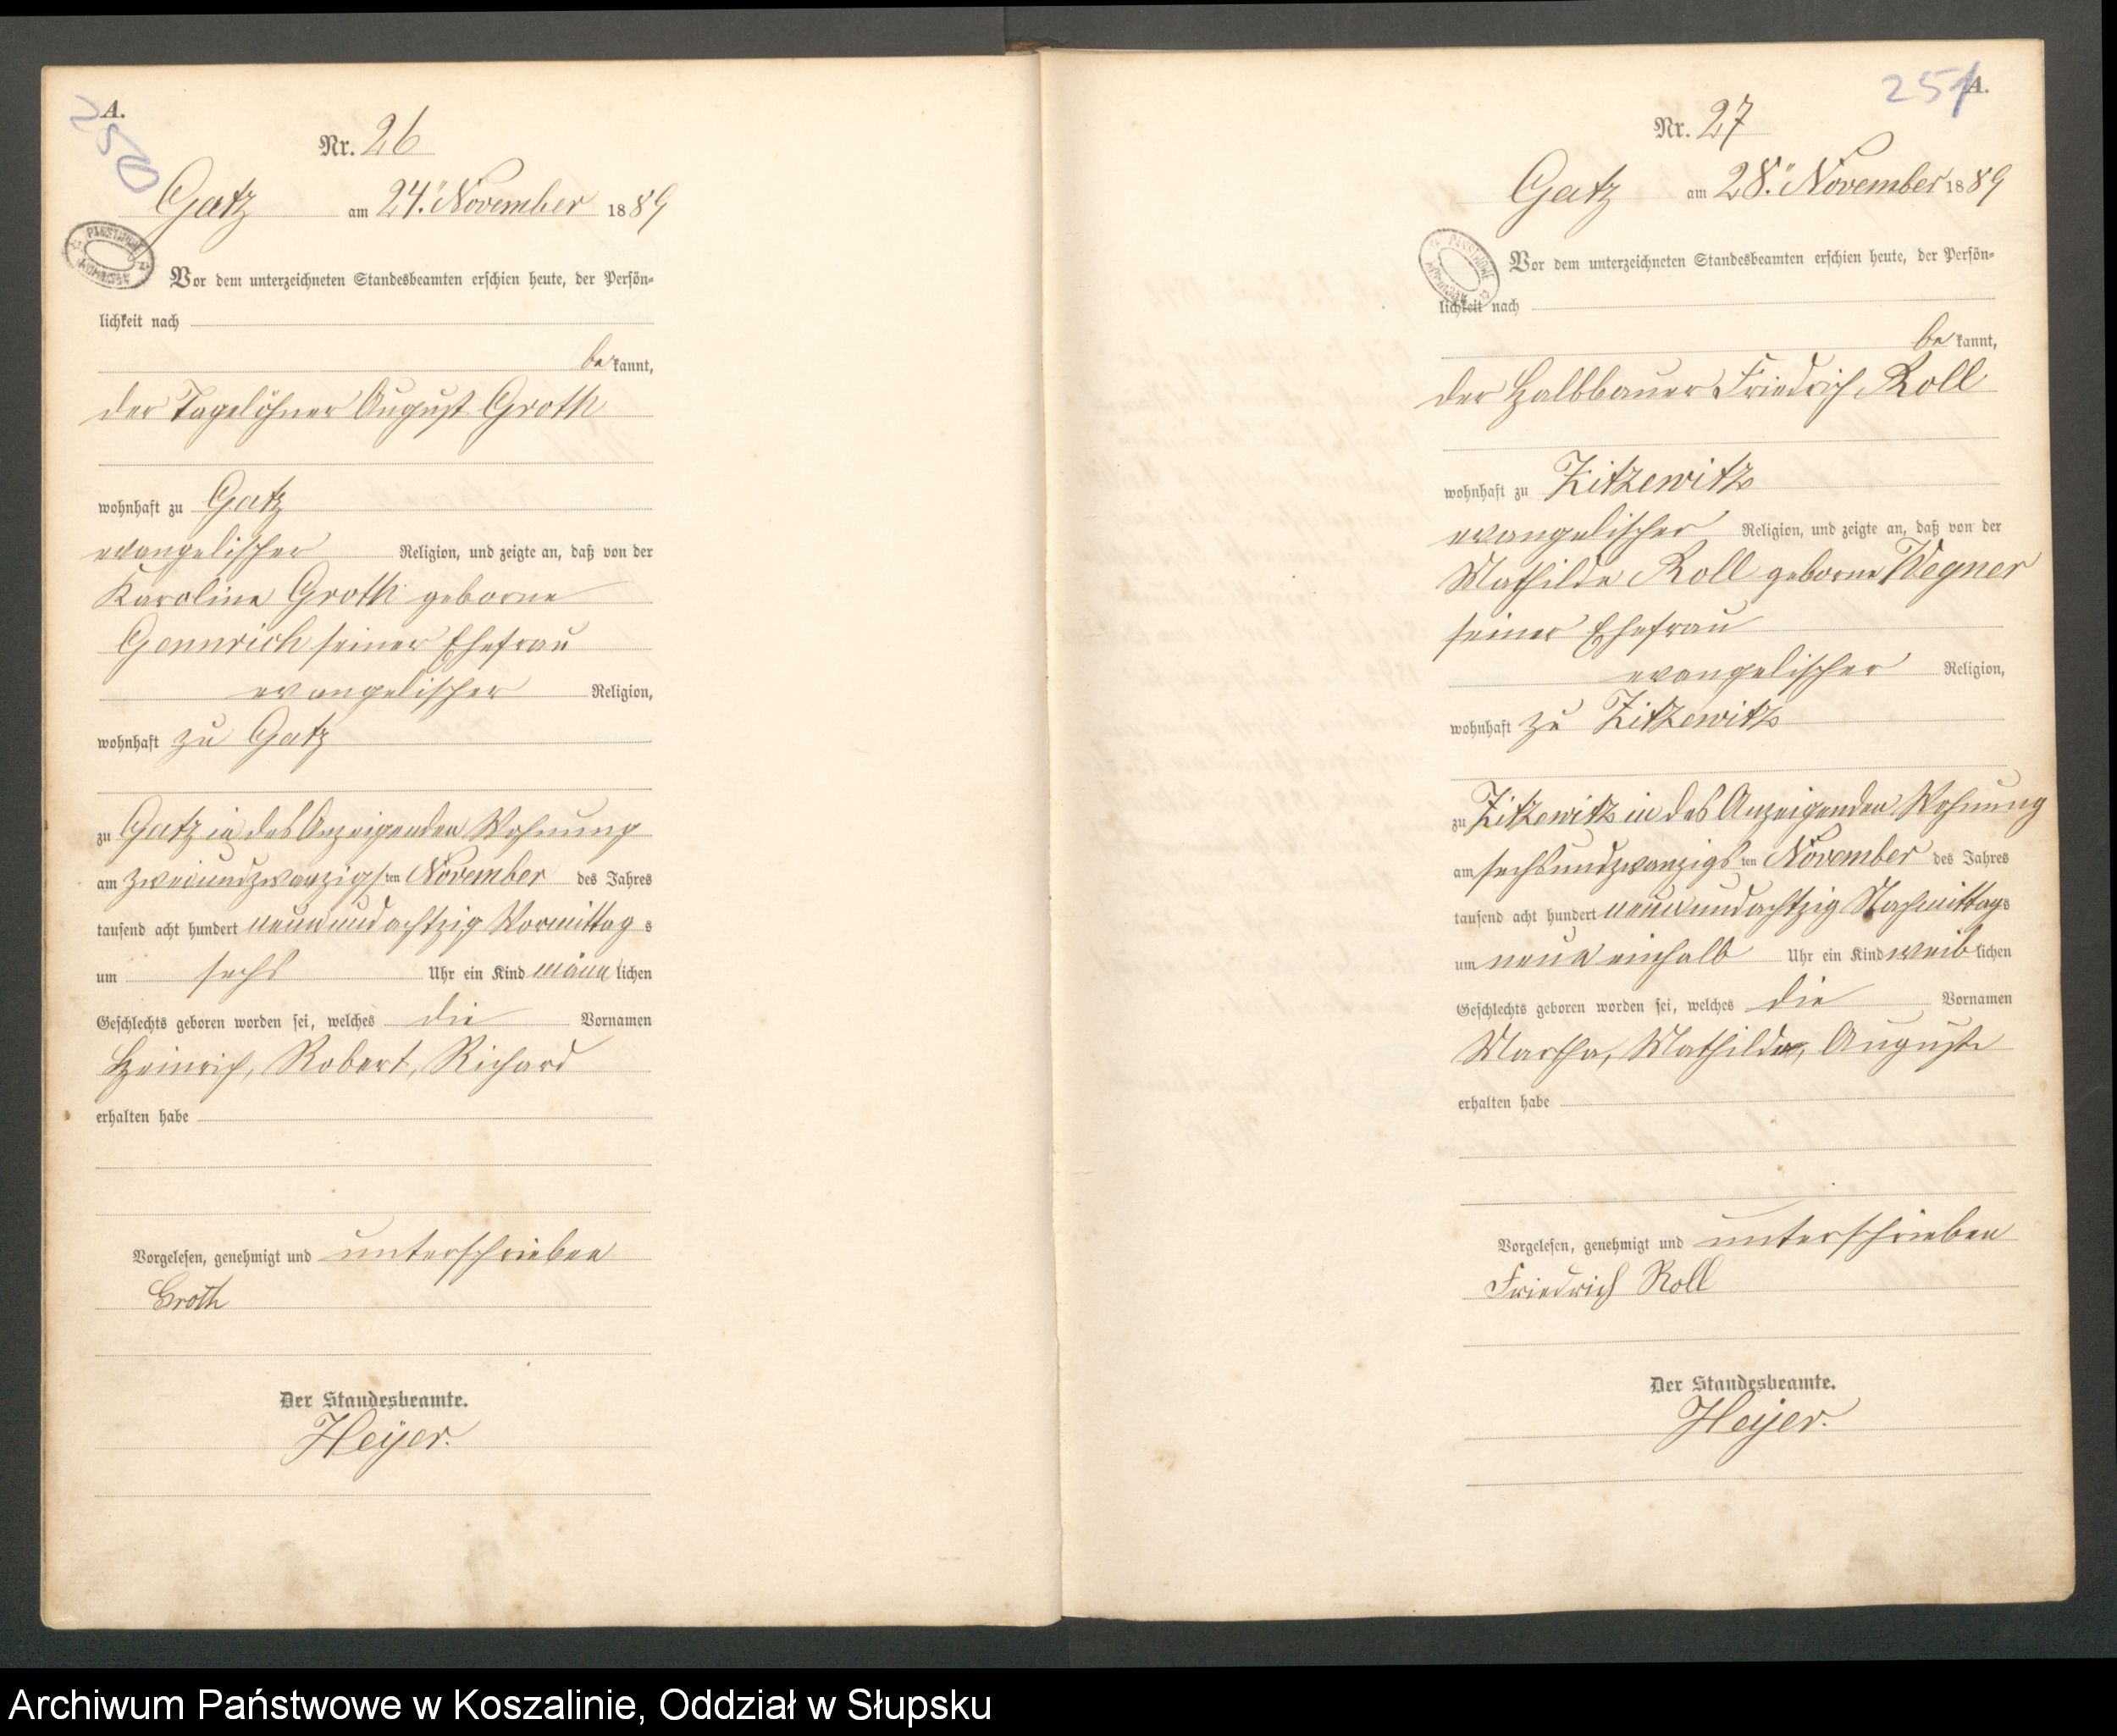 A.
250
Nr. 26
Gatz am 24.ten November 1889
Vor dem unterzeichneten Standesbeamten erschien heute, der Persön-
lichkeit nach
be kannt,
der Tagelöhner August Groth
wohnhaft zu Gatz
evangelischer Religion, und zeigte an, daß von der
Karoline Groth geborne
Gennrich seiner Ehefrau
evangelischer Religion,
wohnhaft zu Gatz
zu Gatz in des Anzeigenden Wohnung
am zweiundzwanzigsten November des Jahres
tausend acht hundert neunundachtzig Vormittags
um sechs Uhr ein Kind männlichen
Geschlechts geboren worden sei, welches die Vornamen
Heinrich, Robert, Richard
erhalten habe
Vorgelesen, genehmigt und unterschrieben
Groth
Der Standesbeamte.
Heyer.
251
A.
Nr. 27
Gatz am 28.ten November 1889
Vor dem unterzeichneten Standesbeamten erschien heute, der Persön-
lichkeit nach
be kannt,
der Halbbauer Friedrich Roll
wohnhaft zu Zitzewitz
evangelischer Religion, und zeigte an, daß von der
Mathilde Roll geborne Wegner
seiner Ehefrau
evangelischer Religion,
wohnhaft zu Zitzewitz
zu Zitzewitz in des Anzeigenden Wohnung
am sechsundzwanzigsten November des Jahres
tausend acht hundert neunundachtzig Nachmittags
um neun einhalb Uhr ein Kind weiblichen
Geschlechts geboren worden sei, welches die Vornamen
Martha, Mathilde, Auguste
erhalten habe
Vorgelesen, genehmigt und unterschrieben
Friedrich Roll
Der Standesbeamte.
Heyer.
Archiwum Państwowe w Koszalinie, Oddział w Słupsku